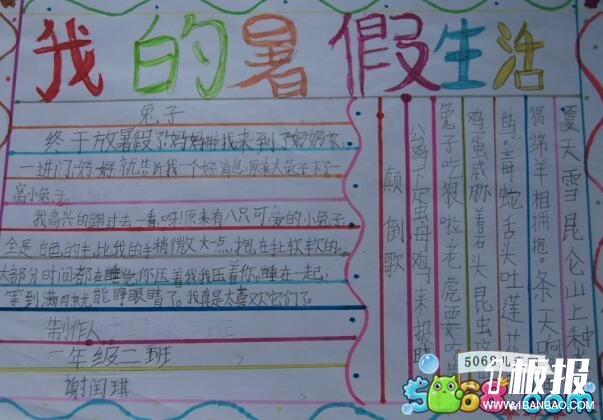 我的暑假生活
兔子
终于放暑假了妈妈带我来到了奶奶家,
一进门奶奶就告诉我一个好消息,原来大兔子下了一
窝小兔子。
我高兴的跑过去一看,呀!原来有八只可爱的小兔子。
全是白色的毛,比我的手稍微大点,抱在手上软软的。
大部分时间都在睡觉,你压着我我压着你,睡在一起,
等到满月就能睁眼睛了。我真是太喜欢它们了。
制作人
一年级二班
谢闰琪
颠倒歌
夏天雪昆仑山上种
狼绵羊相拥抱。一条大
毒毒蛇舌头吐莲花
鸡蛋威胁着石头昆虫攻
兔子吃狼啦老虎要吃
公鸡下定虫母鸡来报晓
5068儿
5068
板报
WWW.1BANBAO.COM